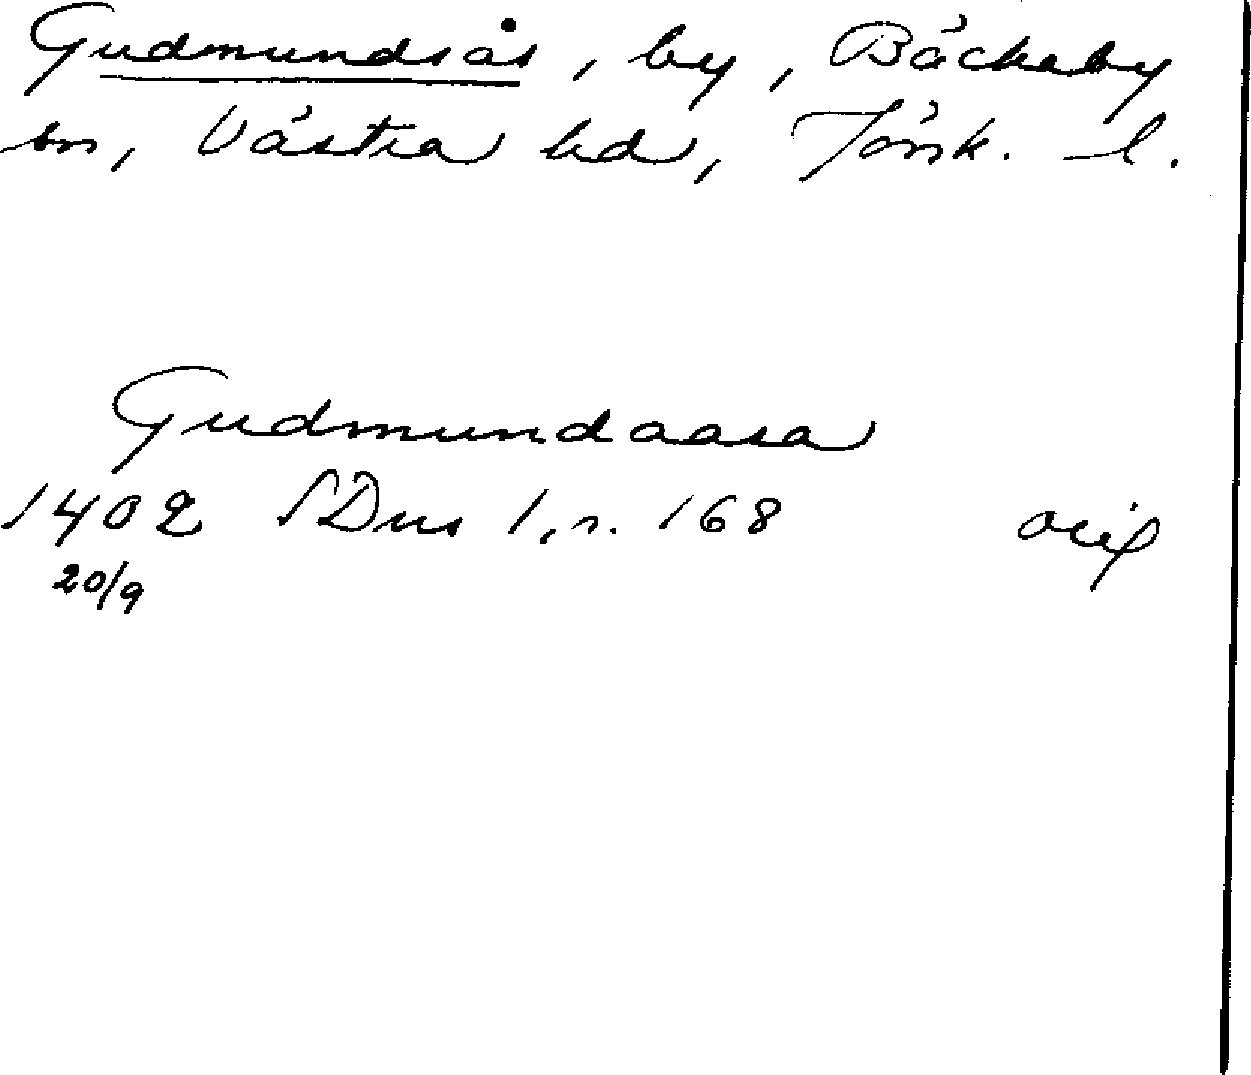 Gudmundsås, by, Bäckaby
sn, Västra hd, Jönk. l.
Gudmundaasa
1402 SDns 1, s. 168 orig
20/9